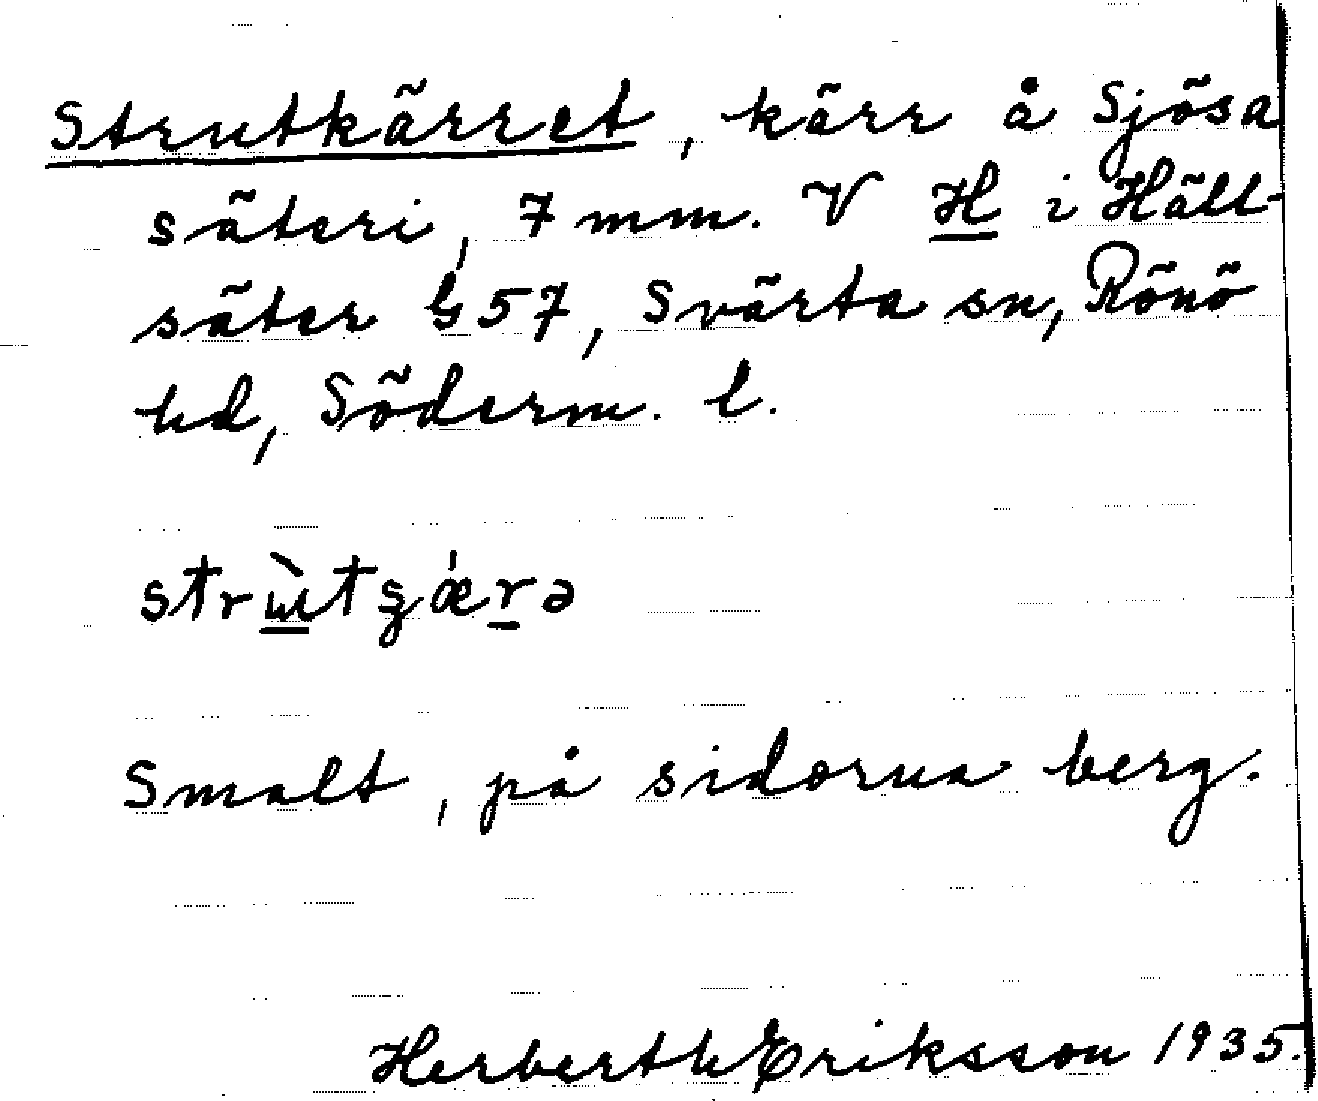 Strutkärret, kärr å Sjösa
säteri, 7 mm. V H i Häll-
säter G57, Svärta sn, Rönö
hd, Söderm. l.
strɯ̀tgǽrə
Smalt, på sidorna berg.
Herberth Eriksson 1935.